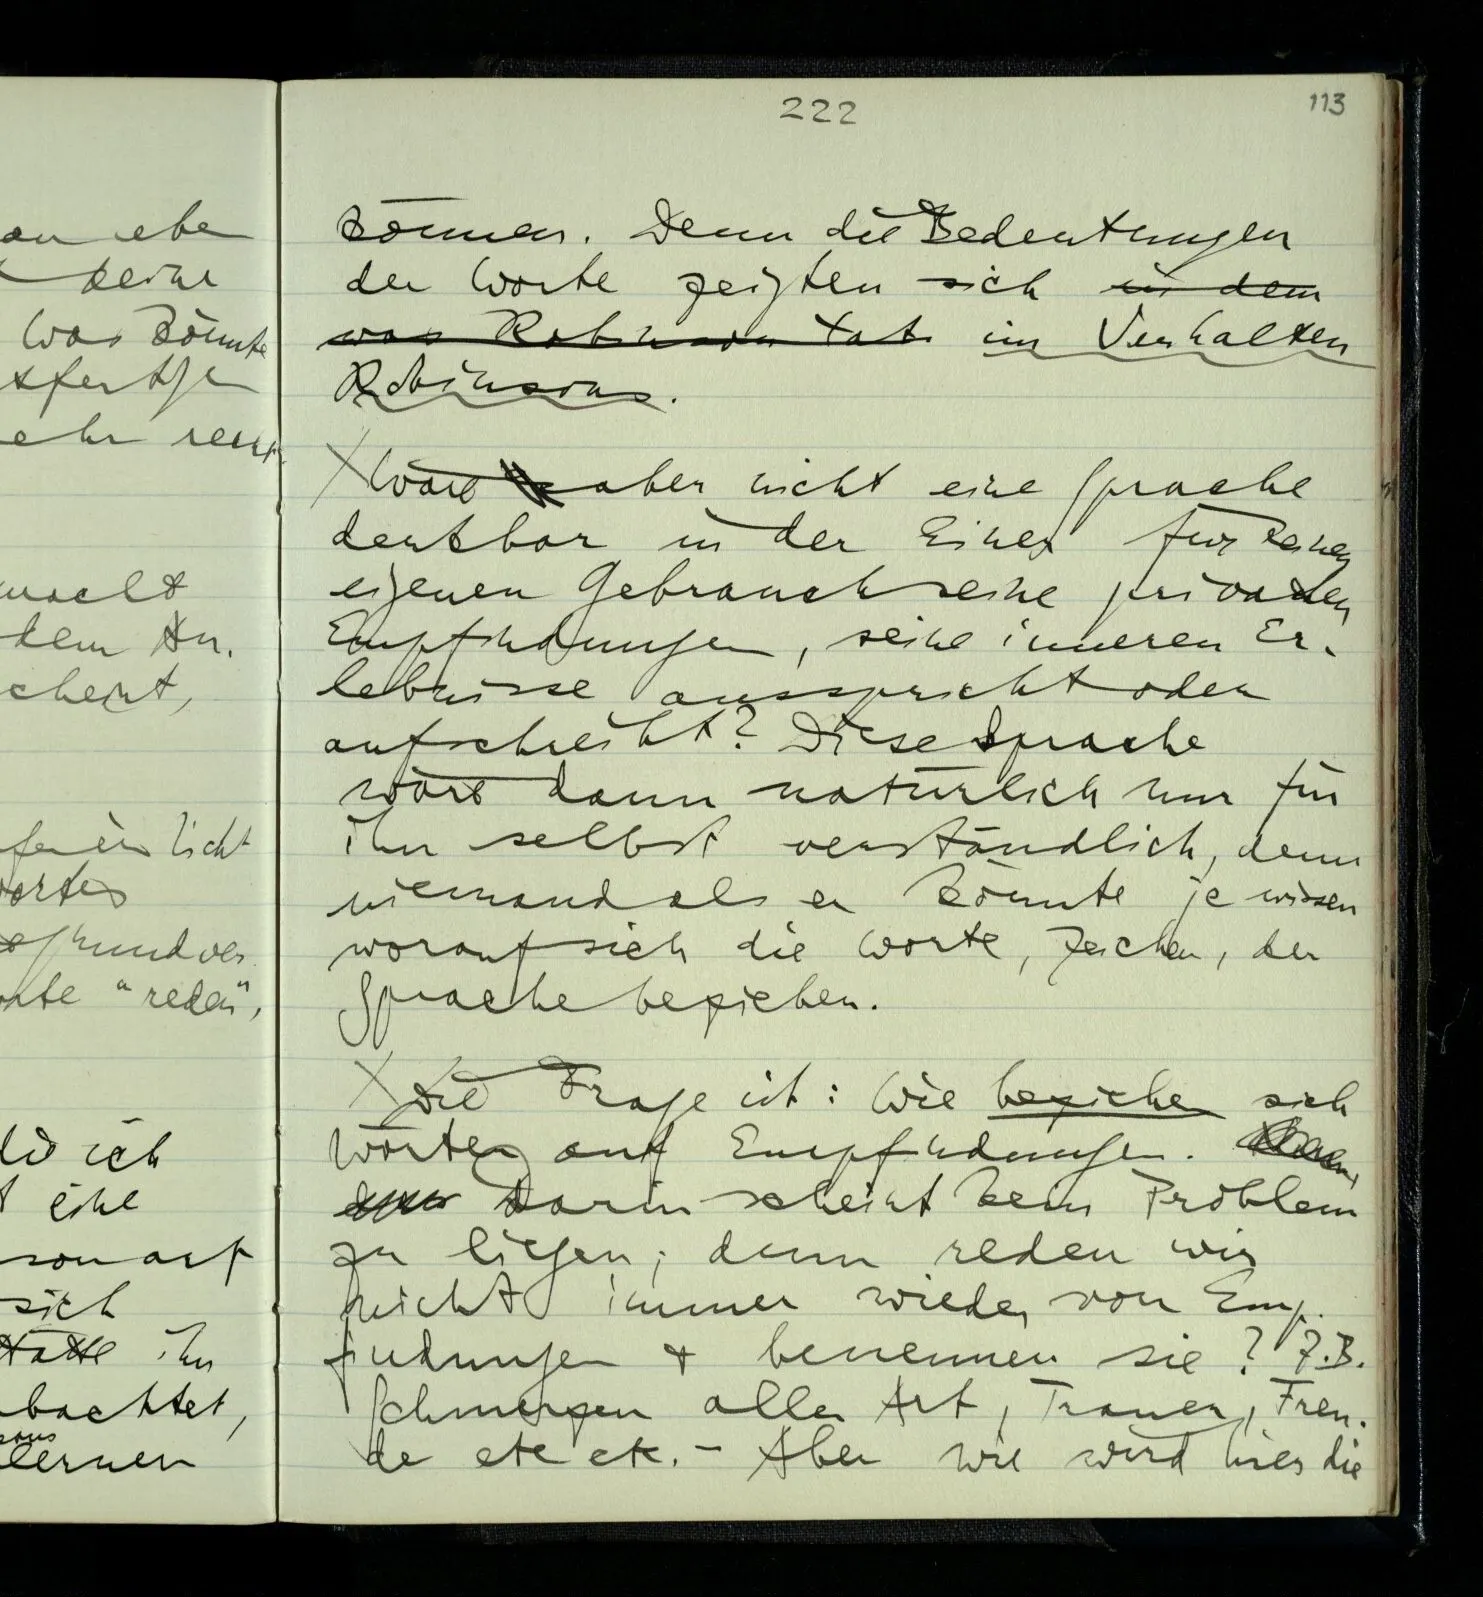 222
113
können. Denn die Bedeutungen
der Worte zeigten sich in dem
was Robinson tat im Verhalten
Robinsons.
Wäre aber nicht eine Sprache
denkbar in der Einer für seinen
eigenen Gebrauch seine privaten
Empfindungen, seine inneren Er-
lebnisse ausspricht oder
aufschreibt? Diese Sprache
wäre dann natürlich nur für
ihn selbst verständlich, denn
niemand als er könnte je wissen
worauf sich die Worte, Zeichen, der
Sprache beziehen.
Die Frage ist: Wie beziehen sich
Wörter auf Empfindungen.
Darin scheint kein Problem
zu liegen; denn reden wir
nicht immer wieder von Emp-
findungen & benennen sie? Z.B.
Schmerzen aller Art, Trauer, Freu-
de etc etc. – Aber wie wird hier die
keine
Was könnte
macht
dem An-
scheint,
licht
Wortes
"reden",
ich
eine
sich
hätte ihn
lernen